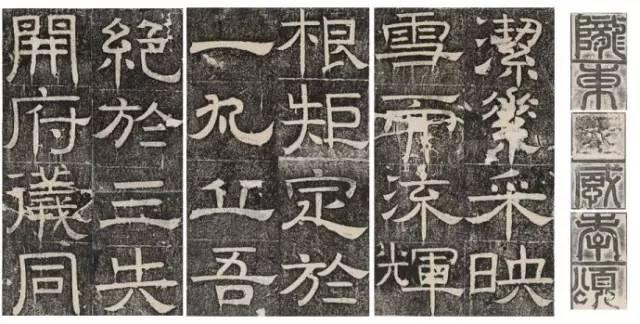 隴東感孝頌
潔采映
雪而流輝
根矩定於
一丸丘吾
絕於三失
開府同